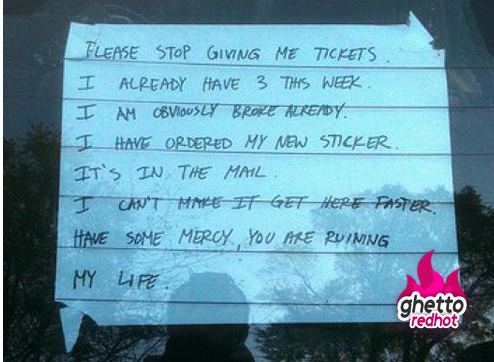 PLEASE STOP GIVING ME TICKETS.
I ALREADY HAVE 3 THIS WEEK.
I AM OBVIOUSLY BROKE ALREADY.
I HAVE ORDERED MY NEW STICKER.
IT'S IN THE MAIL.
I CAN'T MAKE IT GET HERE FASTER.
HAVE SOME MERCY, YOU ARE RUINING
MY LIFE.
ghetto
redhot